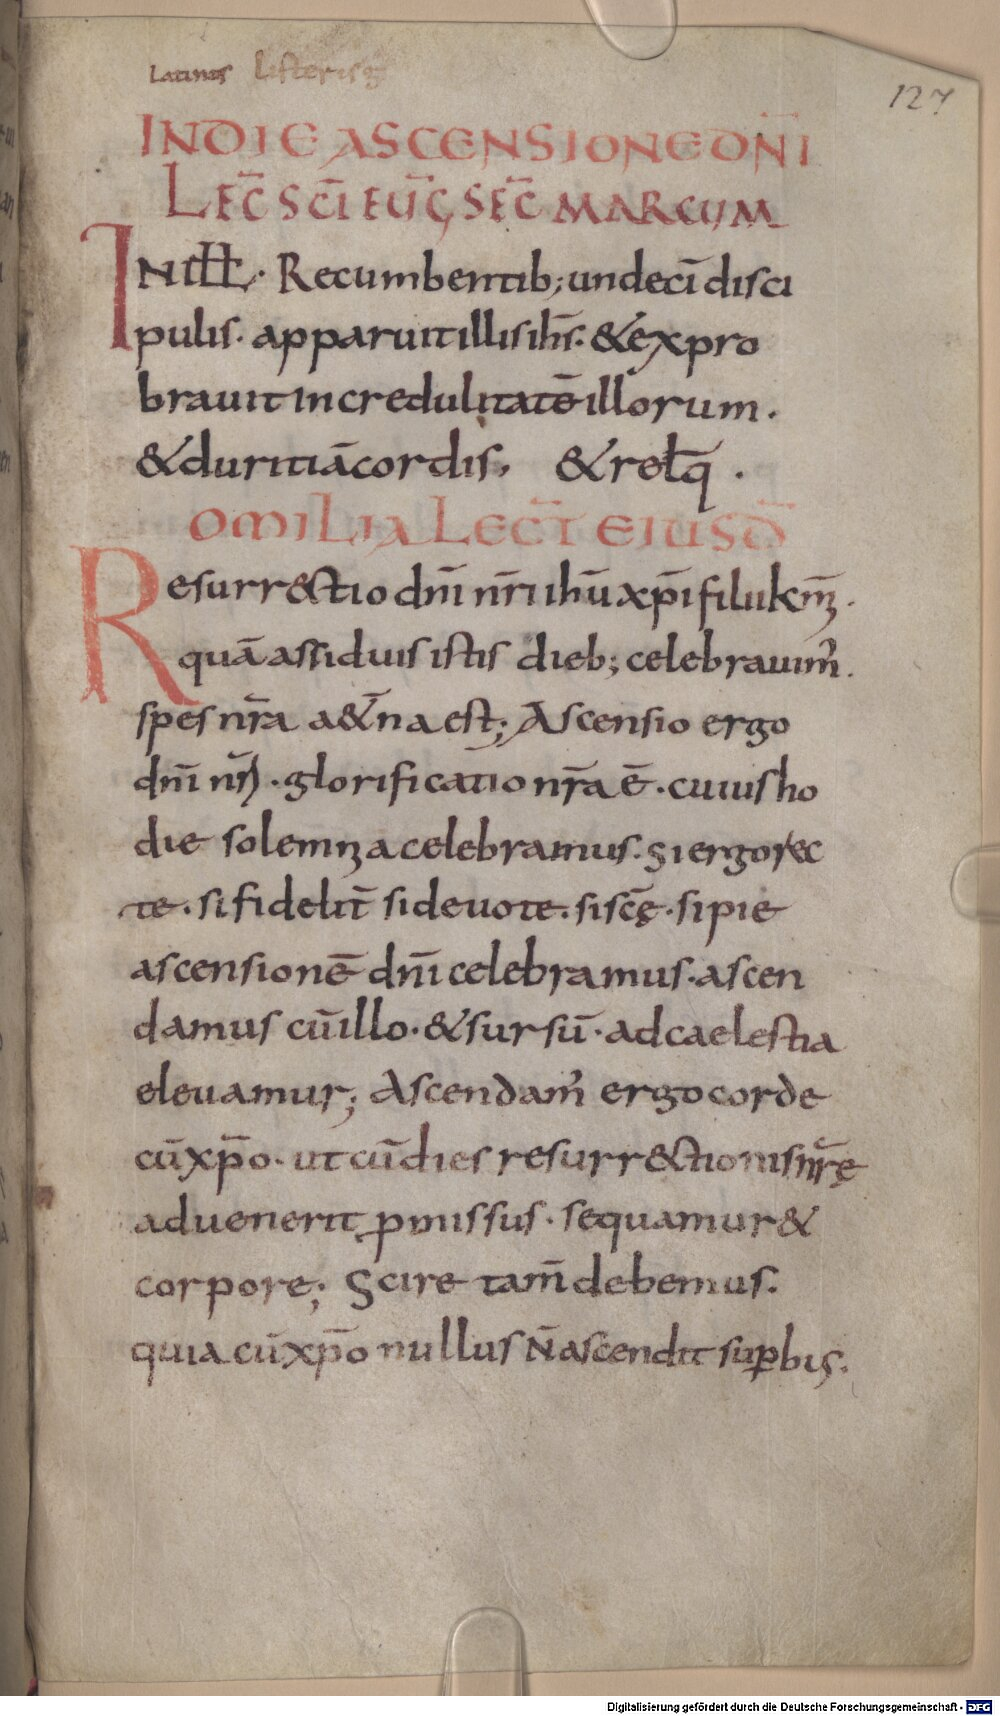 Latinis
127
IN DIE ASCENSIONE DN̄I
LEC̄ SC̄I EUḠ SEC̄ MARCUM
IN ILL̄. Recumbentib; undecī disci
pulis. apparuit illis ih̄s. & expro
brauit incredulitatē illorum.
& duritiā cordis, & relq̄.
OMILIA LECT̄ EIUSD̄
Resurr&ctio dn̄i nr̄i ih̄u xp̄i fili uk̄m.
quā assiduis istis dieb; celebrauim̄.
spes nr̄a a&̄na est; Ascensio ergo
dn̄i nr̄i. glorificatio nr̄a ē. cuius ho
die solemnia celebramus. Si ergo rec
te. si fidelit̄ si deuote. si sc̄ę. si pie
ascensionē dn̄i celebramus. ascen
damus cū illo. & sursū. ad caelestia
eleuamur; Ascendam̄ ergo corde
cū xp̄o. ut cū dies resurr&ctionis nr̄ę
aduenerit ꝓmissus. sequamur &
corpore; Scire tam̄ debemus.
quia cū xp̄o nullus N̄ ascendit suꝑbis.
Digitalisierung gefördert durch die Deutsche Forschungsgemeinschaft - DFG